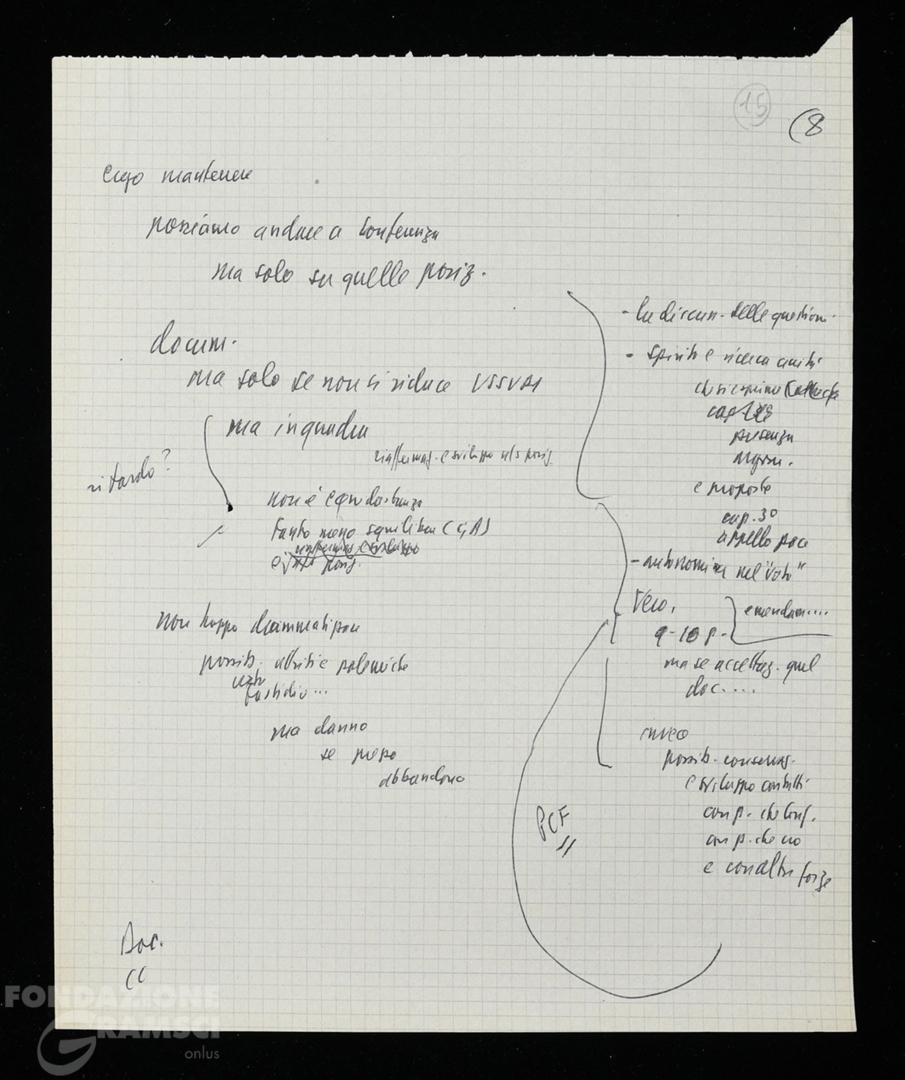 15
(8
ergo mantenere
possiamo andare a Conferenza
ma solo su quelle posiz.
docum.
ma solo se non si riduce USSUA
ma inquadra
riaffermaz. e sviluppo ns posiz
ritardo?
non è equidistanza
tanto meno equilibrio (GA)
e posiz.
non troppo drammatizzare
possib. critiche polemiche
fastidio...
ma danno
se preso
abbandono
Doc.
CC
- la discuss. delle question.
- spirito e ricerca unità
presenza
e proposte
cap. 3º
appello pace
- autonomia nel "voto"
Vero,
9-10 p.
emendam....
ma se accettaz. quel
doc....
invece
possib. conservaz.
e sviluppo contatti
con p. che Conf.
con p. che no
e con altre forze
PCF
FONDAZIONE
GRAMSCI
onlus